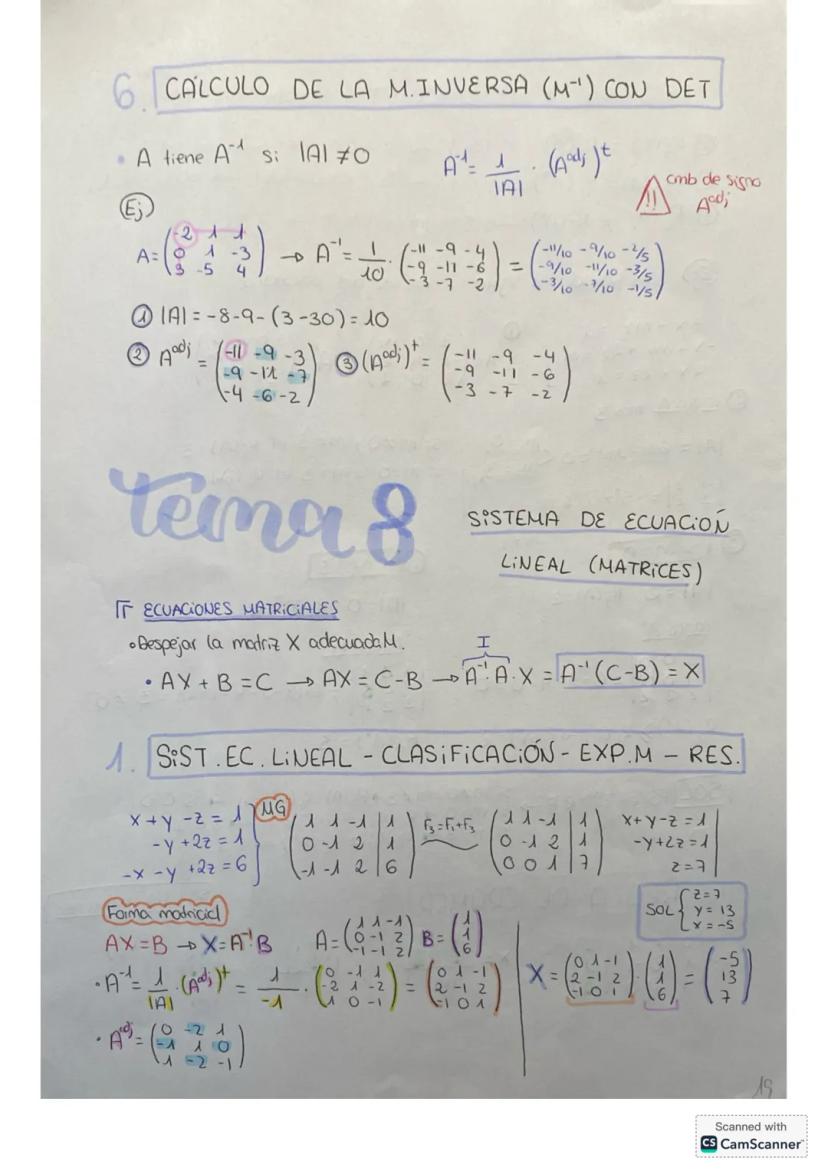 6. CÁLCULO DE LA M.INVERSA (M⁻¹) CON DET
• A tiene A⁻¹ si |A| ≠ 0
A⁻¹ = 1/|A| · (Aᵃᵈʲ)ᵗ
!! cmb de signo Aᵃᵈʲ
Ej)
A = (-2 1 1 / 0 1 -3 / 3 -5 4) → A⁻¹ = 1/10 · (-11 -9 -4 / -9 -11 -6 / -3 -7 -2) = (-11/10 -9/10 -2/5 / -9/10 -11/10 -3/5 / -3/10 -7/10 -1/5)
① |A| = -8-9-(3-30) = 10
② Aᵃᵈʲ = (-11 -9 -3 / -9 -11 -7 / -4 -6 -2) ③ (Aᵃᵈʲ)ᵗ = (-11 -9 -4 / -9 -11 -6 / -3 -7 -2)
tema 8
SISTEMA DE ECUACIÓN
LINEAL (MATRICES)
ECUACIONES MATRICIALES
• Despejar la matriz X adecuadaM.
I
• AX + B = C → AX = C-B → A⁻¹·A·X = A⁻¹(C-B) = X
1. SIST. EC. LINEAL - CLASIFICACIÓN - EXP.M - RES.
x+y-z = 1
-y+2z = 1
-x-y+2z = 6
MG
(1 1 -1 | 1 / 0 -1 2 | 1 / -1 -1 2 | 6) F₃=F₁+F₃ (1 1 -1 | 1 / 0 -1 2 | 1 / 0 0 1 | 7)
x+y-z = 1
-y+2z = 1
z = 7
SOL { z = 7
y = 13
x = -5
Forma matricial
AX = B → X = A⁻¹·B A = (1 1 -1 / 0 -1 2 / -1 -1 2) B = (1 / 1 / 6)
• A⁻¹ = 1/|A| · (Aᵃᵈʲ)ᵗ = 1/-1 · (0 -1 1 / -2 1 -2 / 1 0 -1) = (0 1 -1 / 2 -1 2 / -1 0 1)
X = (0 1 -1 / 2 -1 2 / -1 0 1) · (1 / 1 / 6) = (-5 / 13 / 7)
• Aᵃᵈʲ = (0 -2 1 / -1 1 0 / 1 -2 -1)
19
Scanned with
CS CamScanner